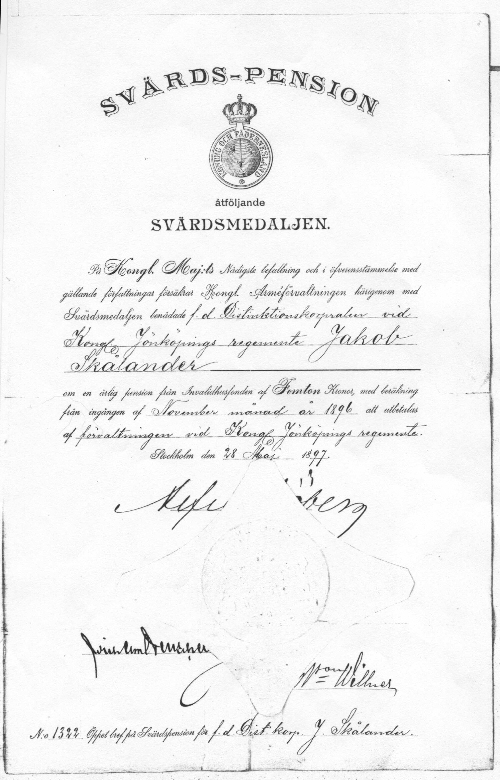 SVÄRDS-PENSION
KONUNG OCH FÄDERNESLAND
åtföljande
SVÄRDSMEDALJEN.
På Kongl. Maj:ts Nådigste befallning och i öfverensstämmelse med
gällande författningar försäkrar Kongl. Arméförvaltningen härigenom med
Svärdsmedaljen benådade f. d. Distinktionskorpralen vid
Kongl Jönköpings regemente Jakob
Skålander
om en årlig pension från Invalidhusfonden af Femton Kronor, med beräkning
från ingången af November månad år 1896 att utbetalas
af förvaltningen vid Kongl Jönköpings regemente.
Stockholm den 28 Maj 1897.
von Willner
N:o 1322. Öppet bref på Svärdspension för f. d. Dist. korp. J. Skålander.